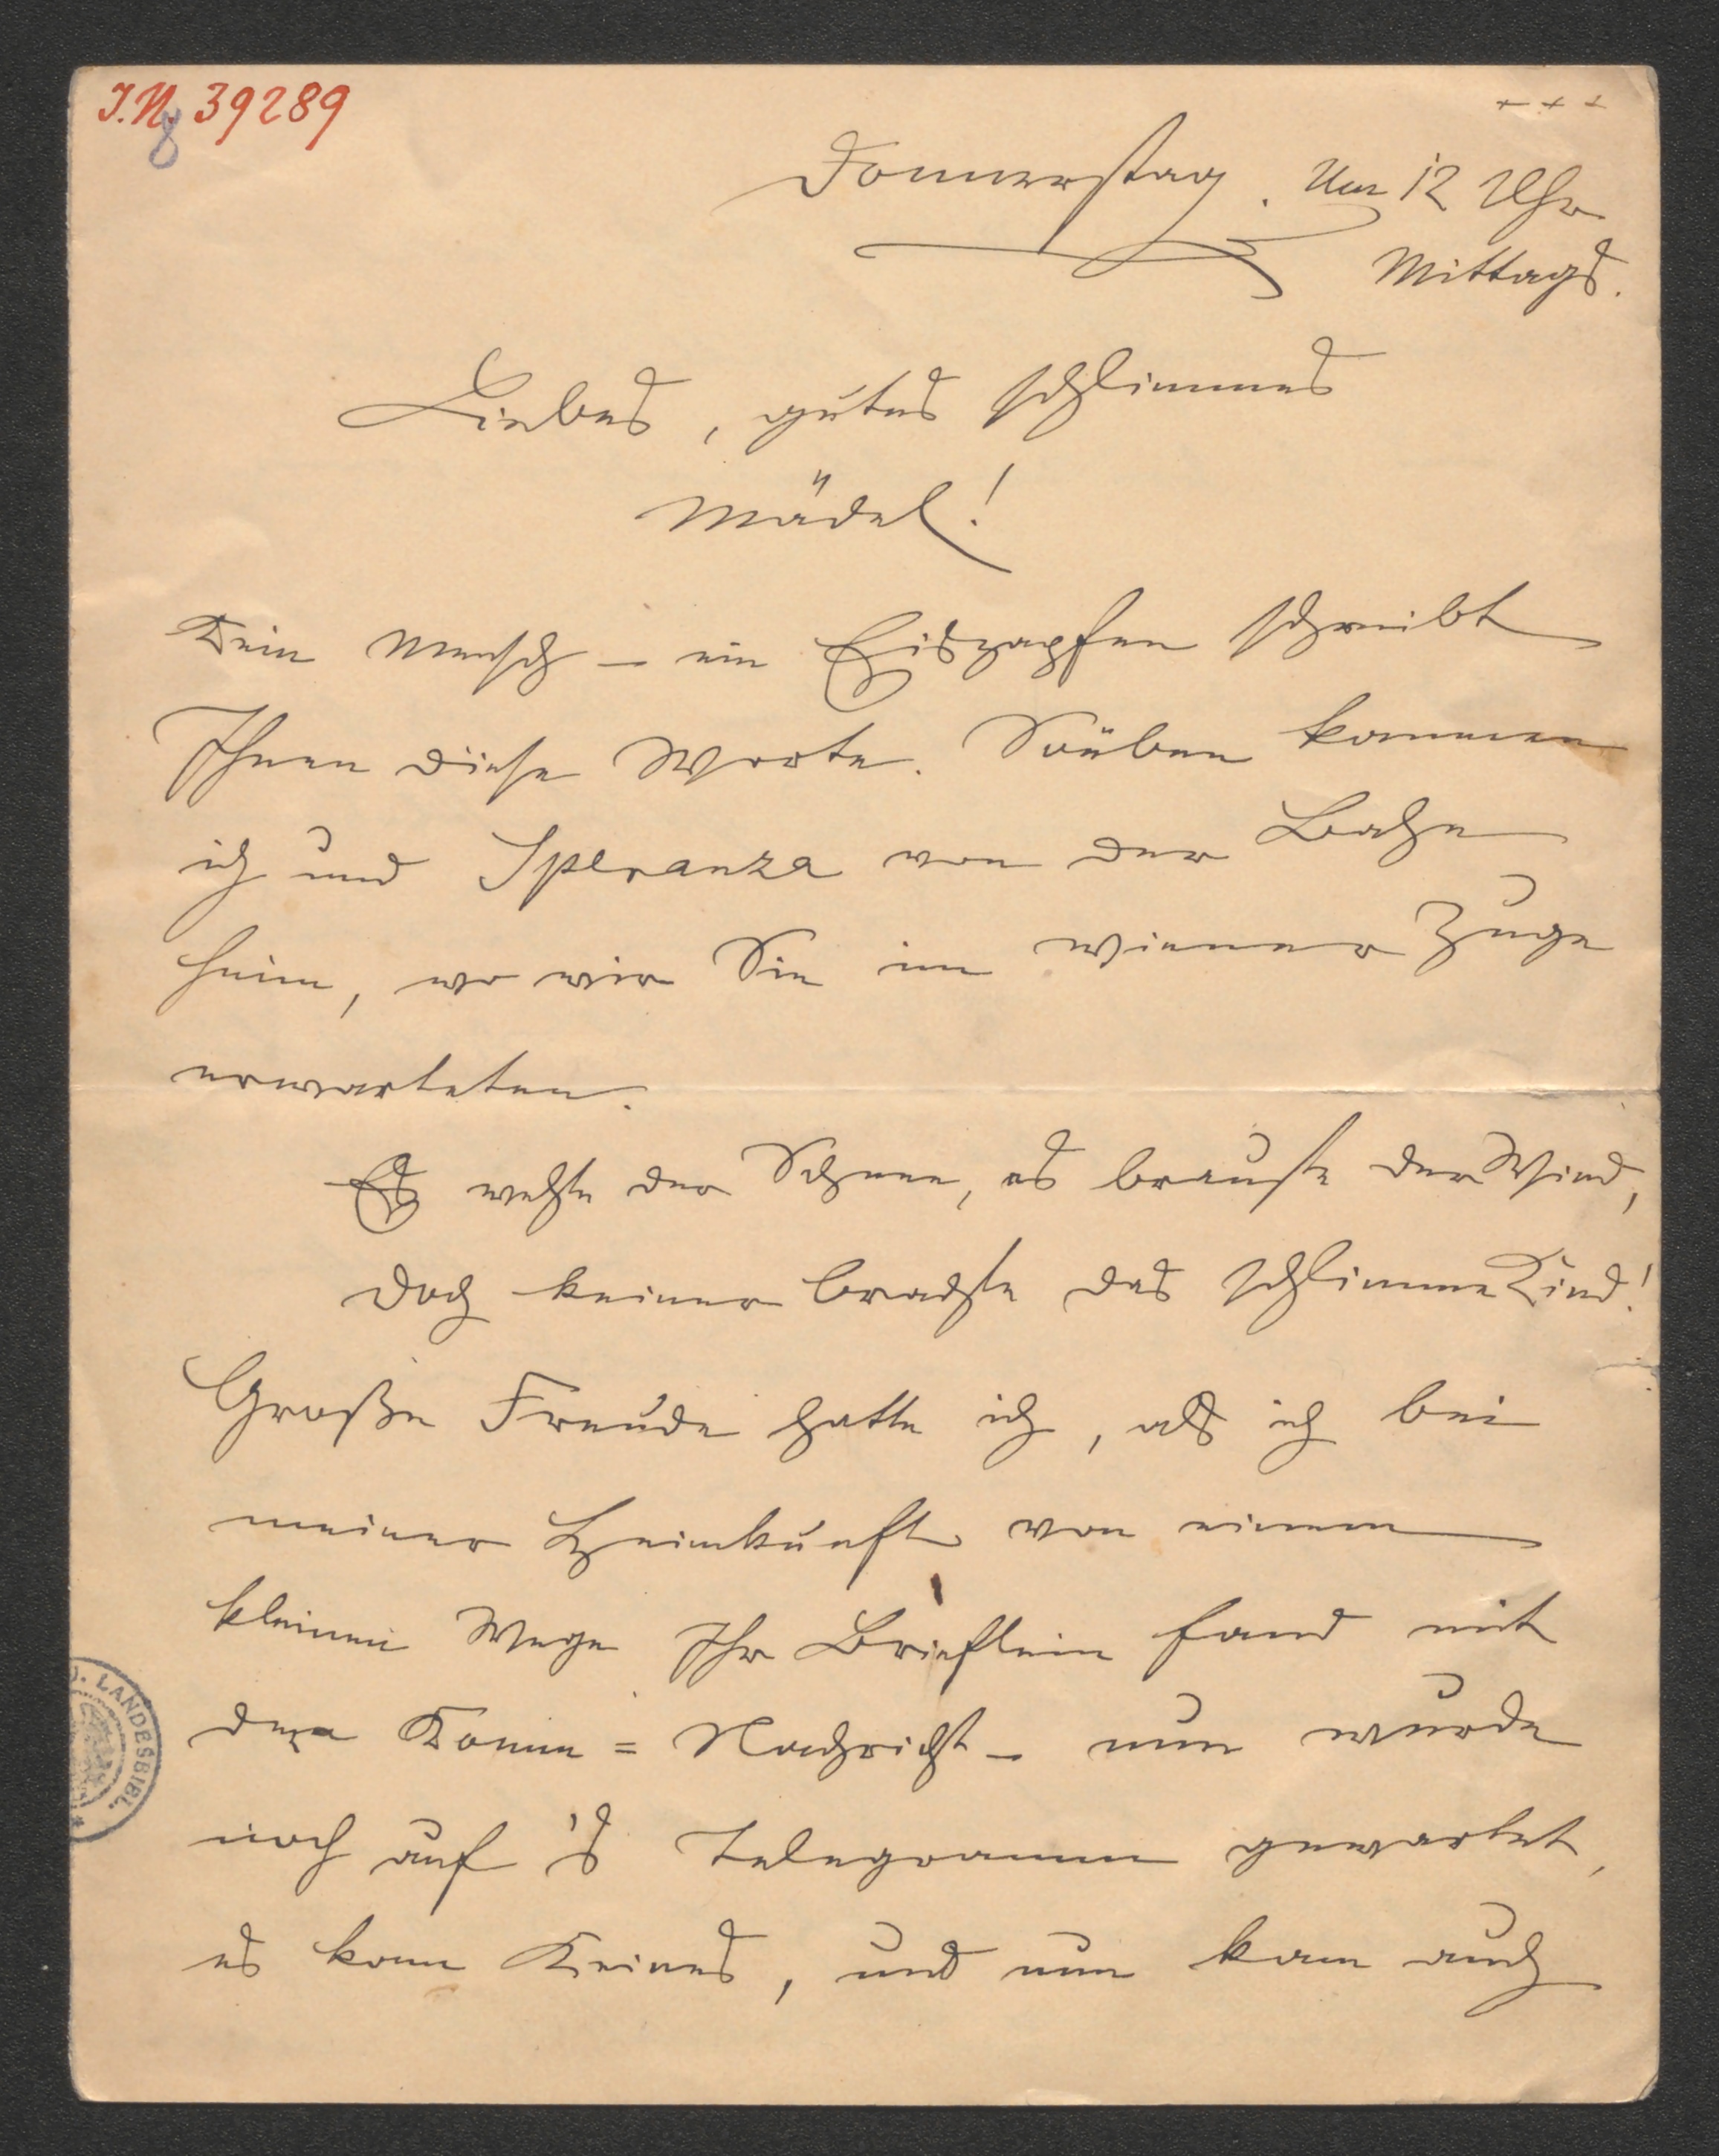 I.N. 39289
+ + +
Donnerstag. Um 12 Uhr
Mittags.
Liebes, gutes schlimmes
Mädel!
Kein Mensch – ein Eiszapfen schreibt
Ihnen diese Worte. Soeben kommen
ich und Speranza von der Bahn
heim, wo wir Sie im wiener Zuge
erwarteten.
Es wehte der Schnee, es brauste der Wind,
Doch keiner brachte das schlimme Kind!
Große Freude hatte ich, als ich bei
meiner Heimkunft von einem
kleinen Wege Ihr Brieflein fand mit
der Komm=Nachricht – nun wurde
noch auf 's Telegramm gewartet,
es kam Keines, und nun kam auch
LANDESBIBL.